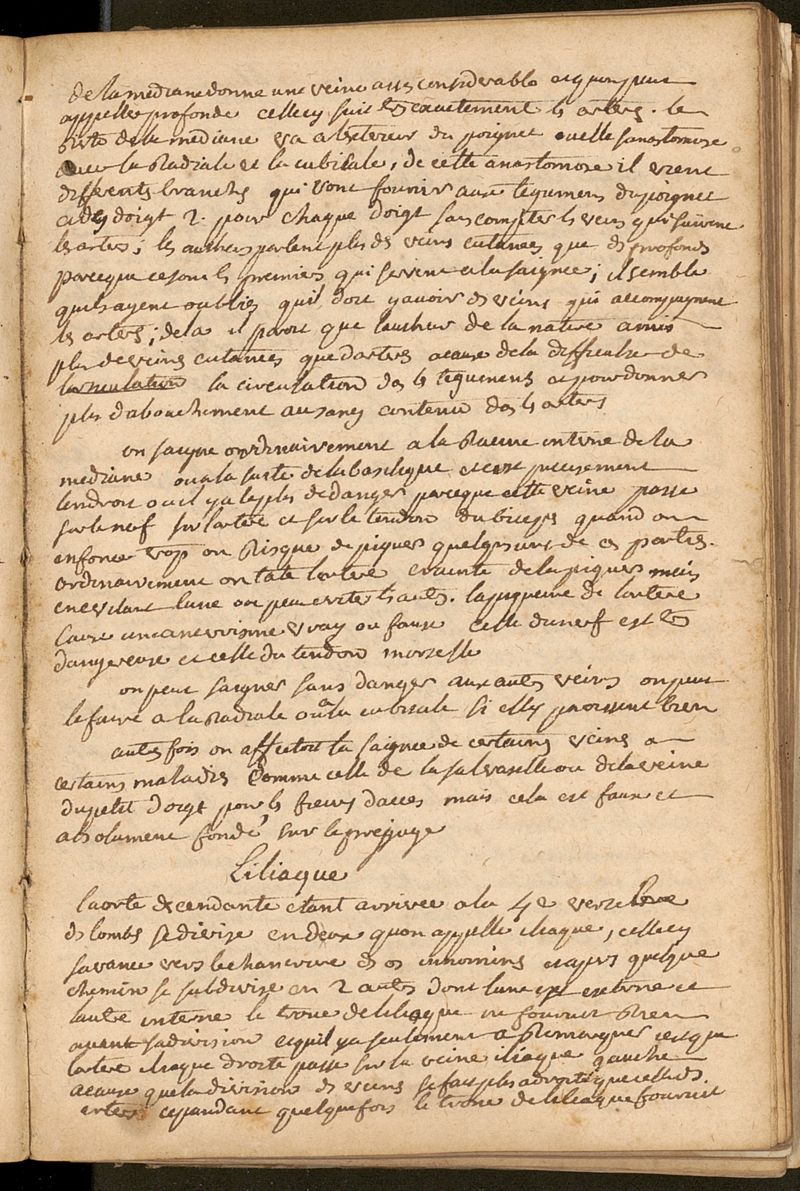 de la mediane donne une veine asses considerable et quon peut
appeller profonde celle cy suit exactement les arteres. le
reste de la mediane va a lexterieur du poignet ou elle sanastomose
avec la Radiale et la cubitale, de cette anastomose il vient
differents branches qui vont fournir aux tegumens du poignet
et des doigt 2. pour chaque doigt sans compter les veines qui suivent
les arteres; les autheurs parlent plus des veines cutanées que des profondes
parceque ce sont les premiers qui servent a la saignée; il semble
quils ayent oubliés quil doit y avoir des veines qui accompagnent
les arteres; dela il paroit que lautheur de la nature a mis
plus de veines cutanées que darteres a cause de la difficulté de
la circulation dans les teguments et pour donner
plus dabouchement au sang contenu dans les arteres
on saigne ordinairement a la Racine interne de la
mediane ou a la suite de la basilique et cest precisement
lendroit ou il y a le plus de danger parceque cette veine passe
sur le nerf sur lartere et sur le tendon du biceps quand on
enfonce trop on Risque de piquer quelques uns de ces parties.
ordinairement on tate lartere crainte de la piquer mais
en evitant lune on peut eviter les autres. la piqueure de lartere
cause un anevrisme vray ou faux celle du nerf est
dangereuse et celle du tendon mortelle
on peut saigner sans danger aux autres veines on peut
le faire a la Radiale ou a la cubitale si elles paroissent bien
autres fois on affectoit la saignée de certaines veines a
certains maladies comme celle de la salvatelle ou de la veine
du petit doigt pour les fievres dacces mais cela est faux et
absolument fondé sur le prejugé
Liliaque
laorte descendante etant arrivée a la 4e vertebre
des lombs se divise en deux quon appelle iliaque, celle cy
savance vers lechancrure des os innominés et apres quelque
chemin se subdivise en 2 autres dont lune est externe et
lautre interne le tronc de liliaque ne fournit Rien
avant sa division et quil y a seulement a Remarquer cest que
lartere iliaque droite passe sur la veine iliaque gauche
a cause que la division des veines se fait plus a droite que celle des
arteres cependant quelquefois le tronc de liliaque fournit